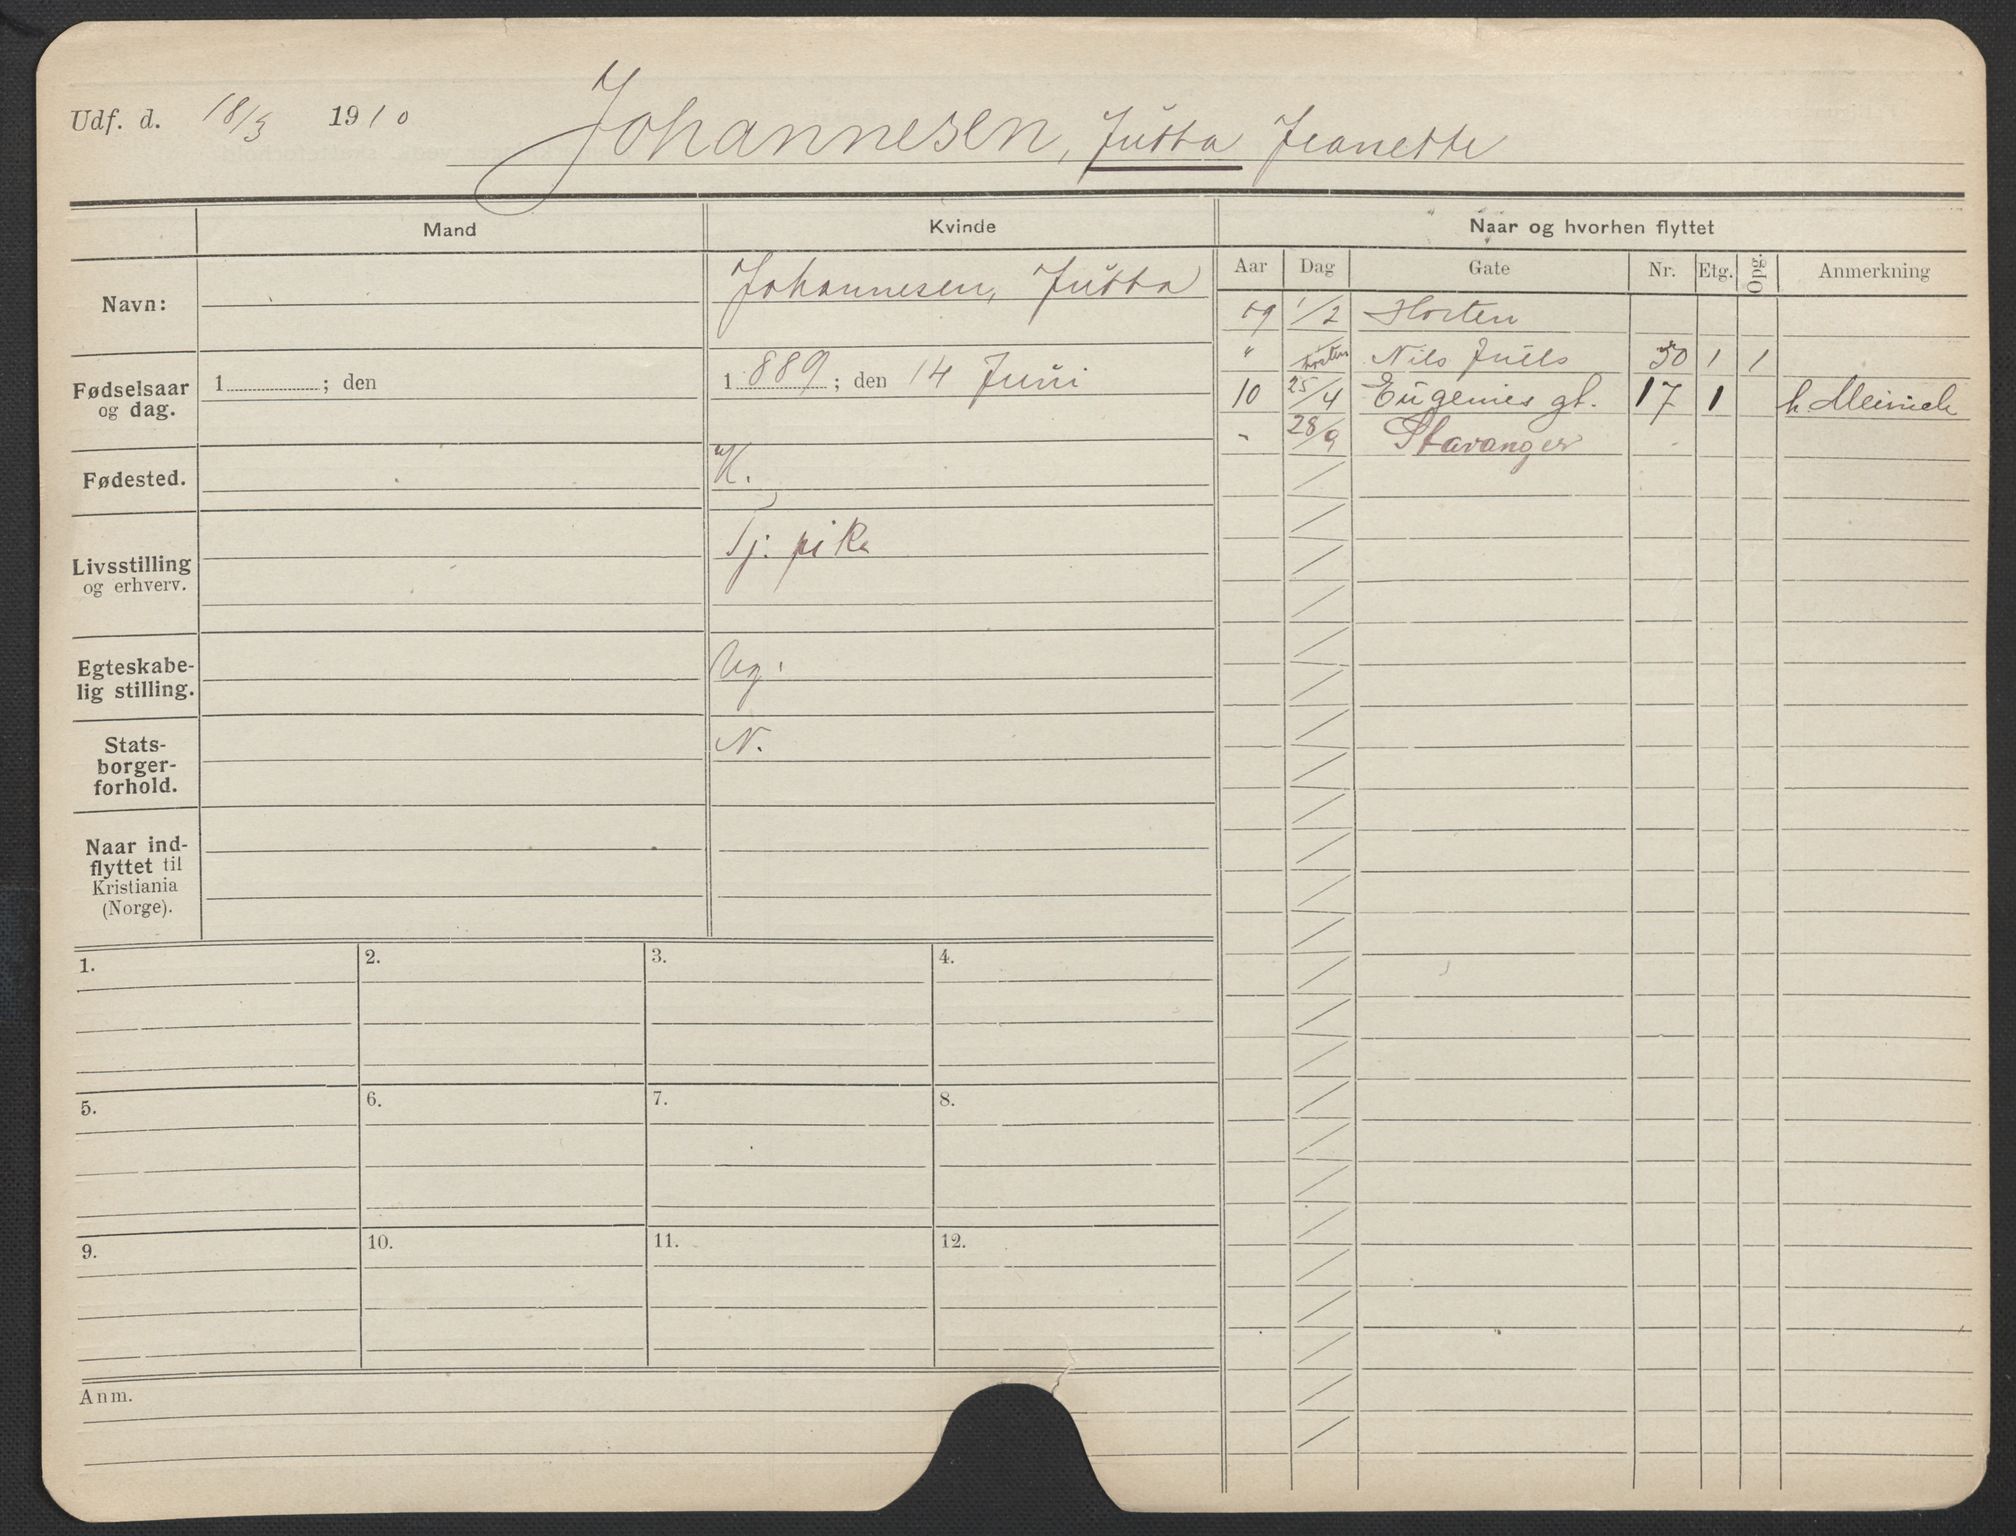 Udf. d. 18/3 1910 Johannesen, Jutta Jeanette
Mand
Kvinde
Naar og hvorhen flyttet
Aar Dag Gate Nr. Etg. Opg. Anmerkning
Navn:
Johannesen, Jutta
09 1/2 Horten
" Nils Juels 50 1 1
Fødselsaar
og dag.
1 ; den
1 889 ; den 14 Juni
10 25/4 Eugenies gt. 17 1 h. Meinich
" 28/9 Stavanger
Fødested.
K.
Livsstilling
og erhverv.
Tj. pike
Egteskabe-
lig stilling.
Ug.
Stats-
borger-
forhold.
N.
Naar ind-
flyttet til
Kristiania
(Norge).
1. 2. 3. 4.
5. 6. 7. 8.
9. 10. 11. 12.
Anm.